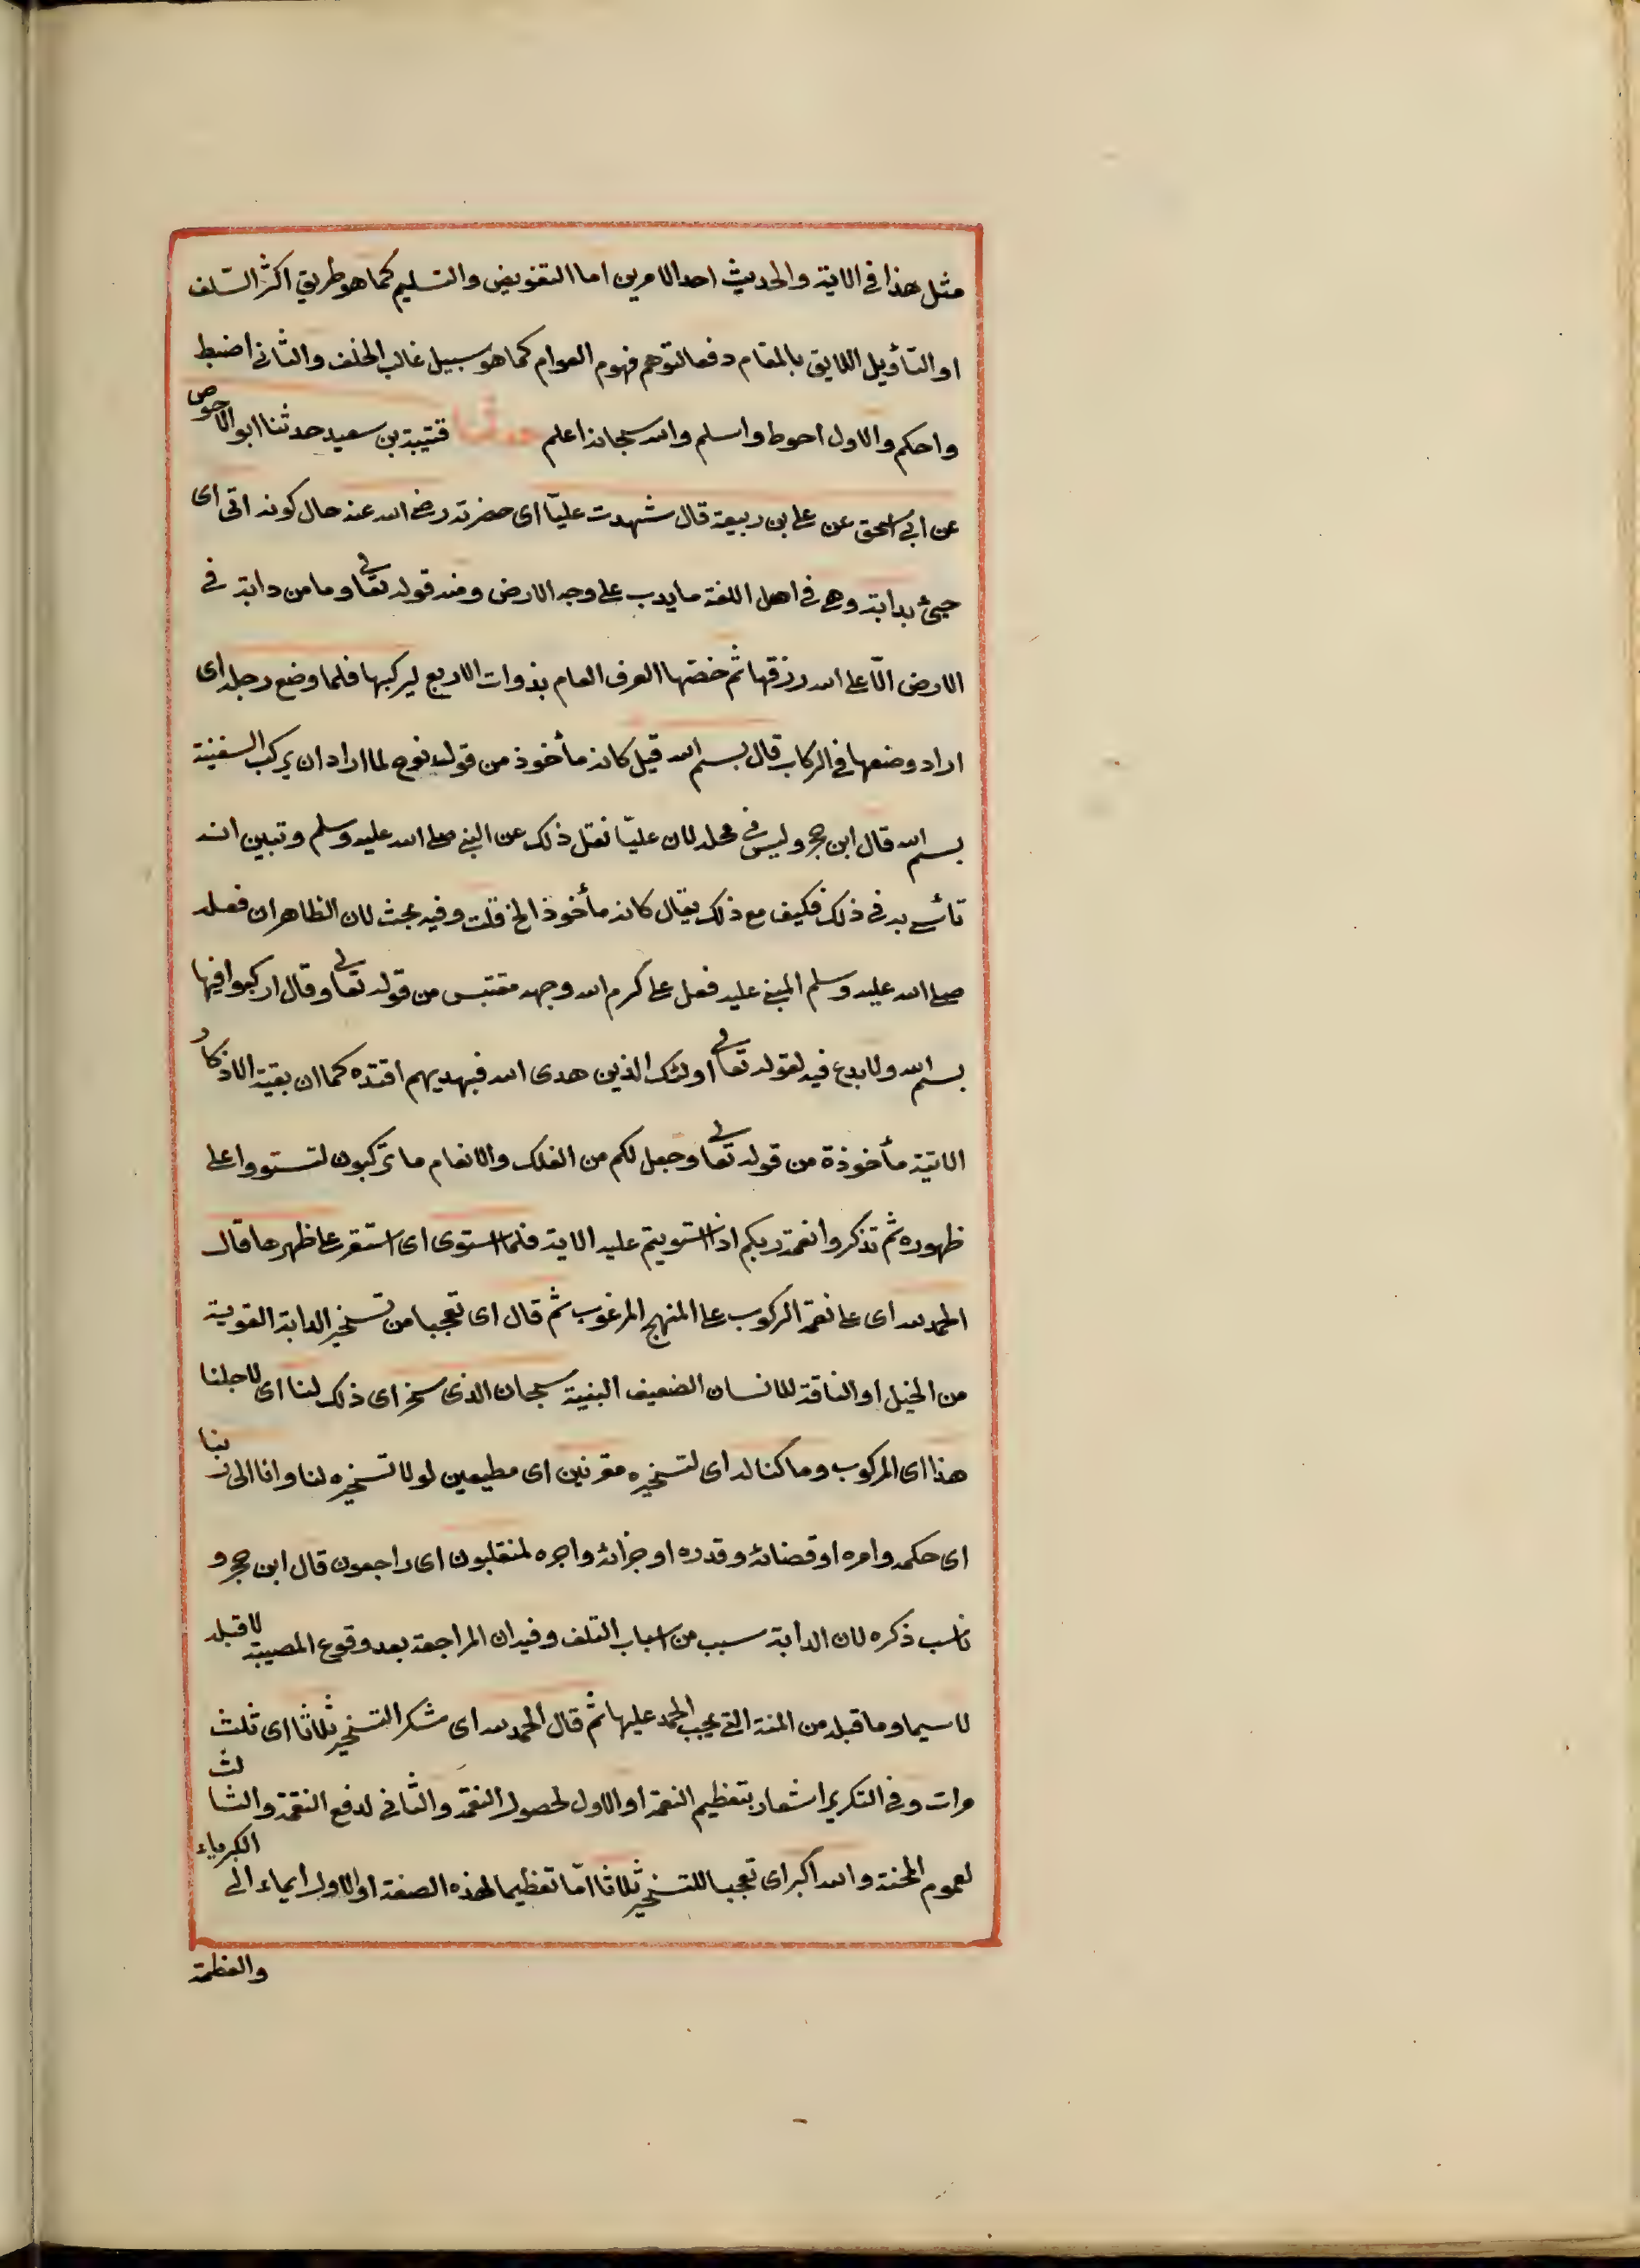 مثل هذا فى الاية والحديث احد الامرين اما التفويض والتسليم كما هو طريق اكثر السّلف
او التأويل اللايق بالمقام دفعا لتوهم فهوم العوام كما هو سبيل غالب الخلف والثانى اضبط
واحكم والاول احوط واسلم والله سبحانه اعلم حدثنا قتيبة بن سعيد حدثنا ابو الاحوص
عن ابى اسحق عن على بن ربيعة قال شهدت عليّا اى حضرته رضى الله عنه حال كونه اتى اى
جيئ بدابة وهى فى اهل اللغة ما يدب على وجه الارض ومنه قوله تعالى وما من دابة فى
الارض الّا على الله رزقها ثم خصّها العرف العام بذوات الاربع ليركبها فلما وضع رجله اى
اراد وضعها فى الركاب قال بسم الله قيل كانه مأخوذ من قول نوح لما اراد ان يركب السفينة
بسم الله قال ابن حجر وليس فى محله لان عليّا نقل ذلك عن النبى صلى الله عليه وسلم وتبين انه
تأسى به فى ذلك فكيف مع ذلك يقال كانه مأخوذ الخ قلت وفيه بحث لان الظاهر ان فعله
صلى الله عليه وسلم المبنى عليه فعل على كرم الله وجهه مقتبس من قوله تعالى وقال اركبوا فيها
بسم الله ولا بدع فيه لقوله تعالى اولئك الذين هدى الله فبهديهم اقتده كما ان بقية الاذكار
الاتية مأخوذة من قوله تعالى وجعل لكم من الفلك والانعام ما تركبون لتستووا على
ظهوره ثم تذكروا نعمة ربكم اذا استويتم عليه الاية فلما استوى اى استقر على ظهرها قال
الحمد لله اى على نعمة الركوب على المنهج المرغوب ثم قال اى تعجبا من تسخير الدابة القوية
من الخيل او الناقة للانسان الضعيف البنية سبحان الذى سخر اى ذلك لنا اى لاجلنا
هذا اى المركوب وما كنا له اى لتسخيره مقرنين اى مطيعين لولا تسخيره لنا وانا الى ربنا
اى حكمه وامره او قضائه وقدره او جزائه واجره لمنقلبون اى راجعون قال ابن حجر و
ناسب ذكره لان الدابة سبب من اسباب التلف وفيه ان المراجعة بعد وقوع المصيبة لا قبله
لا سيما وما قبله من المنة التى يجب الحمد عليها ثم قال الحمد لله اى شكر التسخير ثلاثا اى ثلث
مرات وفى التكرير اشعار بتعظيم النعمة او الاول لحصول النعمة والثانى لدفع النقمة والثالث
لعموم المحنة والله اكبر اى تعجبا للتسخير ثلاثا امّا تعظيما لهذه الصفة او الاول ايماء الى الكبرياء
والعظمة